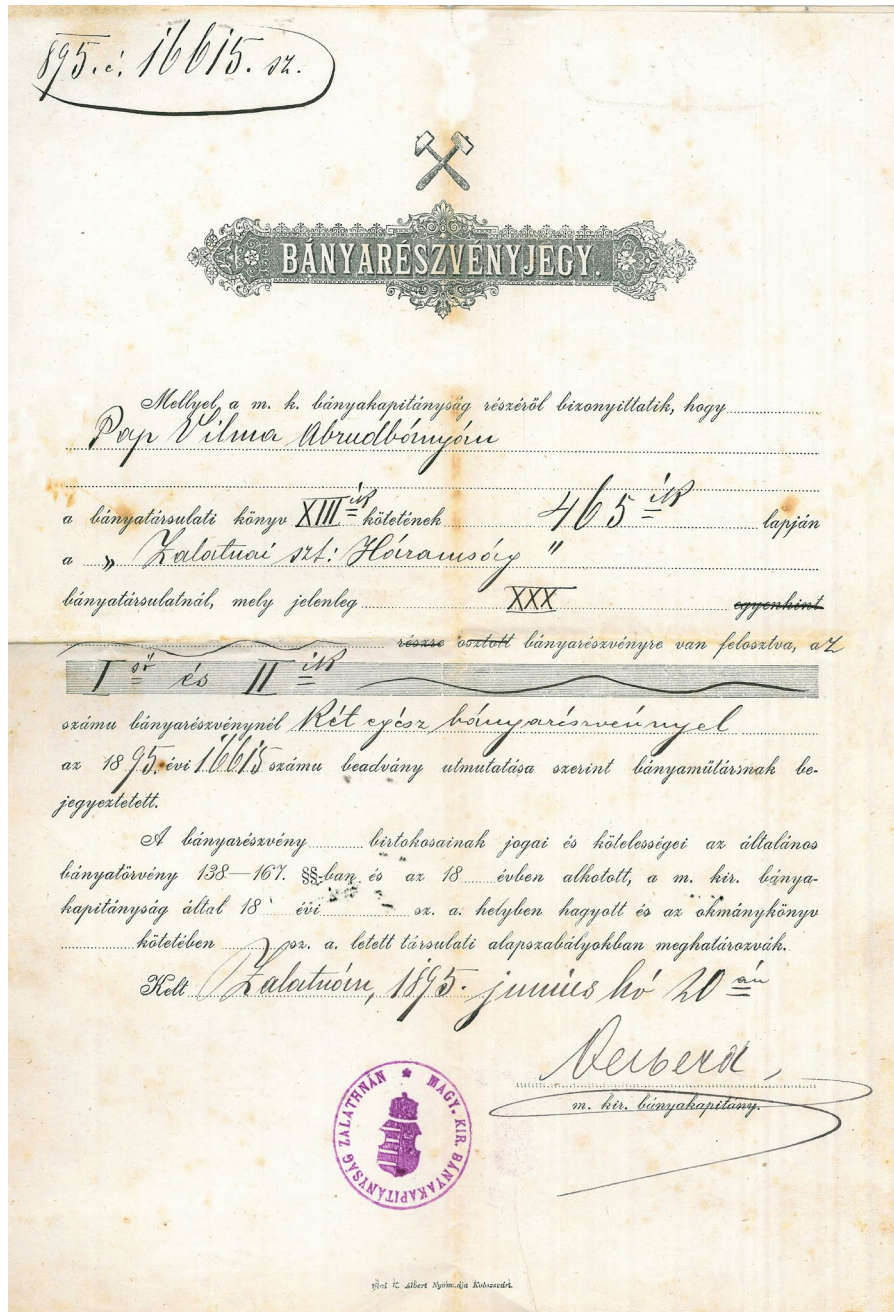 895. é. 16615. sz.
BÁNYARÉSZVÉNYJEGY.
Mellyel a m. k. bányakapitányság részéről bizonyittatik, hogy
Pap Vilma Abrudbányán
a bányatársulati könyv XIII ik kötetének 465 ik lapján
a „Zalatnai szt: Háromság"
bányatársulatnál, mely jelenleg XXX egyenkint
részre osztott bányarészvényre van felosztva, az
I ső és II ik
számu bányarészvénynél Két egész bányarészvénnyel
az 1895. évi 16615 számu beadvány utmutatása szerint bányaműtársnak be-
jegyeztetett.
A bányarészvény birtokosainak jogai és kötelességei az általános
bányatörvény 138—167. §§-ban és az 18 évben alkotott, a m. kir. bánya-
kapitányság által 18 évi sz. a. helyben hagyott és az okmánykönyv
kötetében sz. a. letett társulati alapszabályokban meghatározvák.
Kelt Zalatnán, 1895. junius hó 20 án
m. kir. bányakapitány.
MAGY. KIR. BÁNYAKAPITÁNYSÁG ZALATHNÁN
Albert Nyomdája Kolozsvárt.